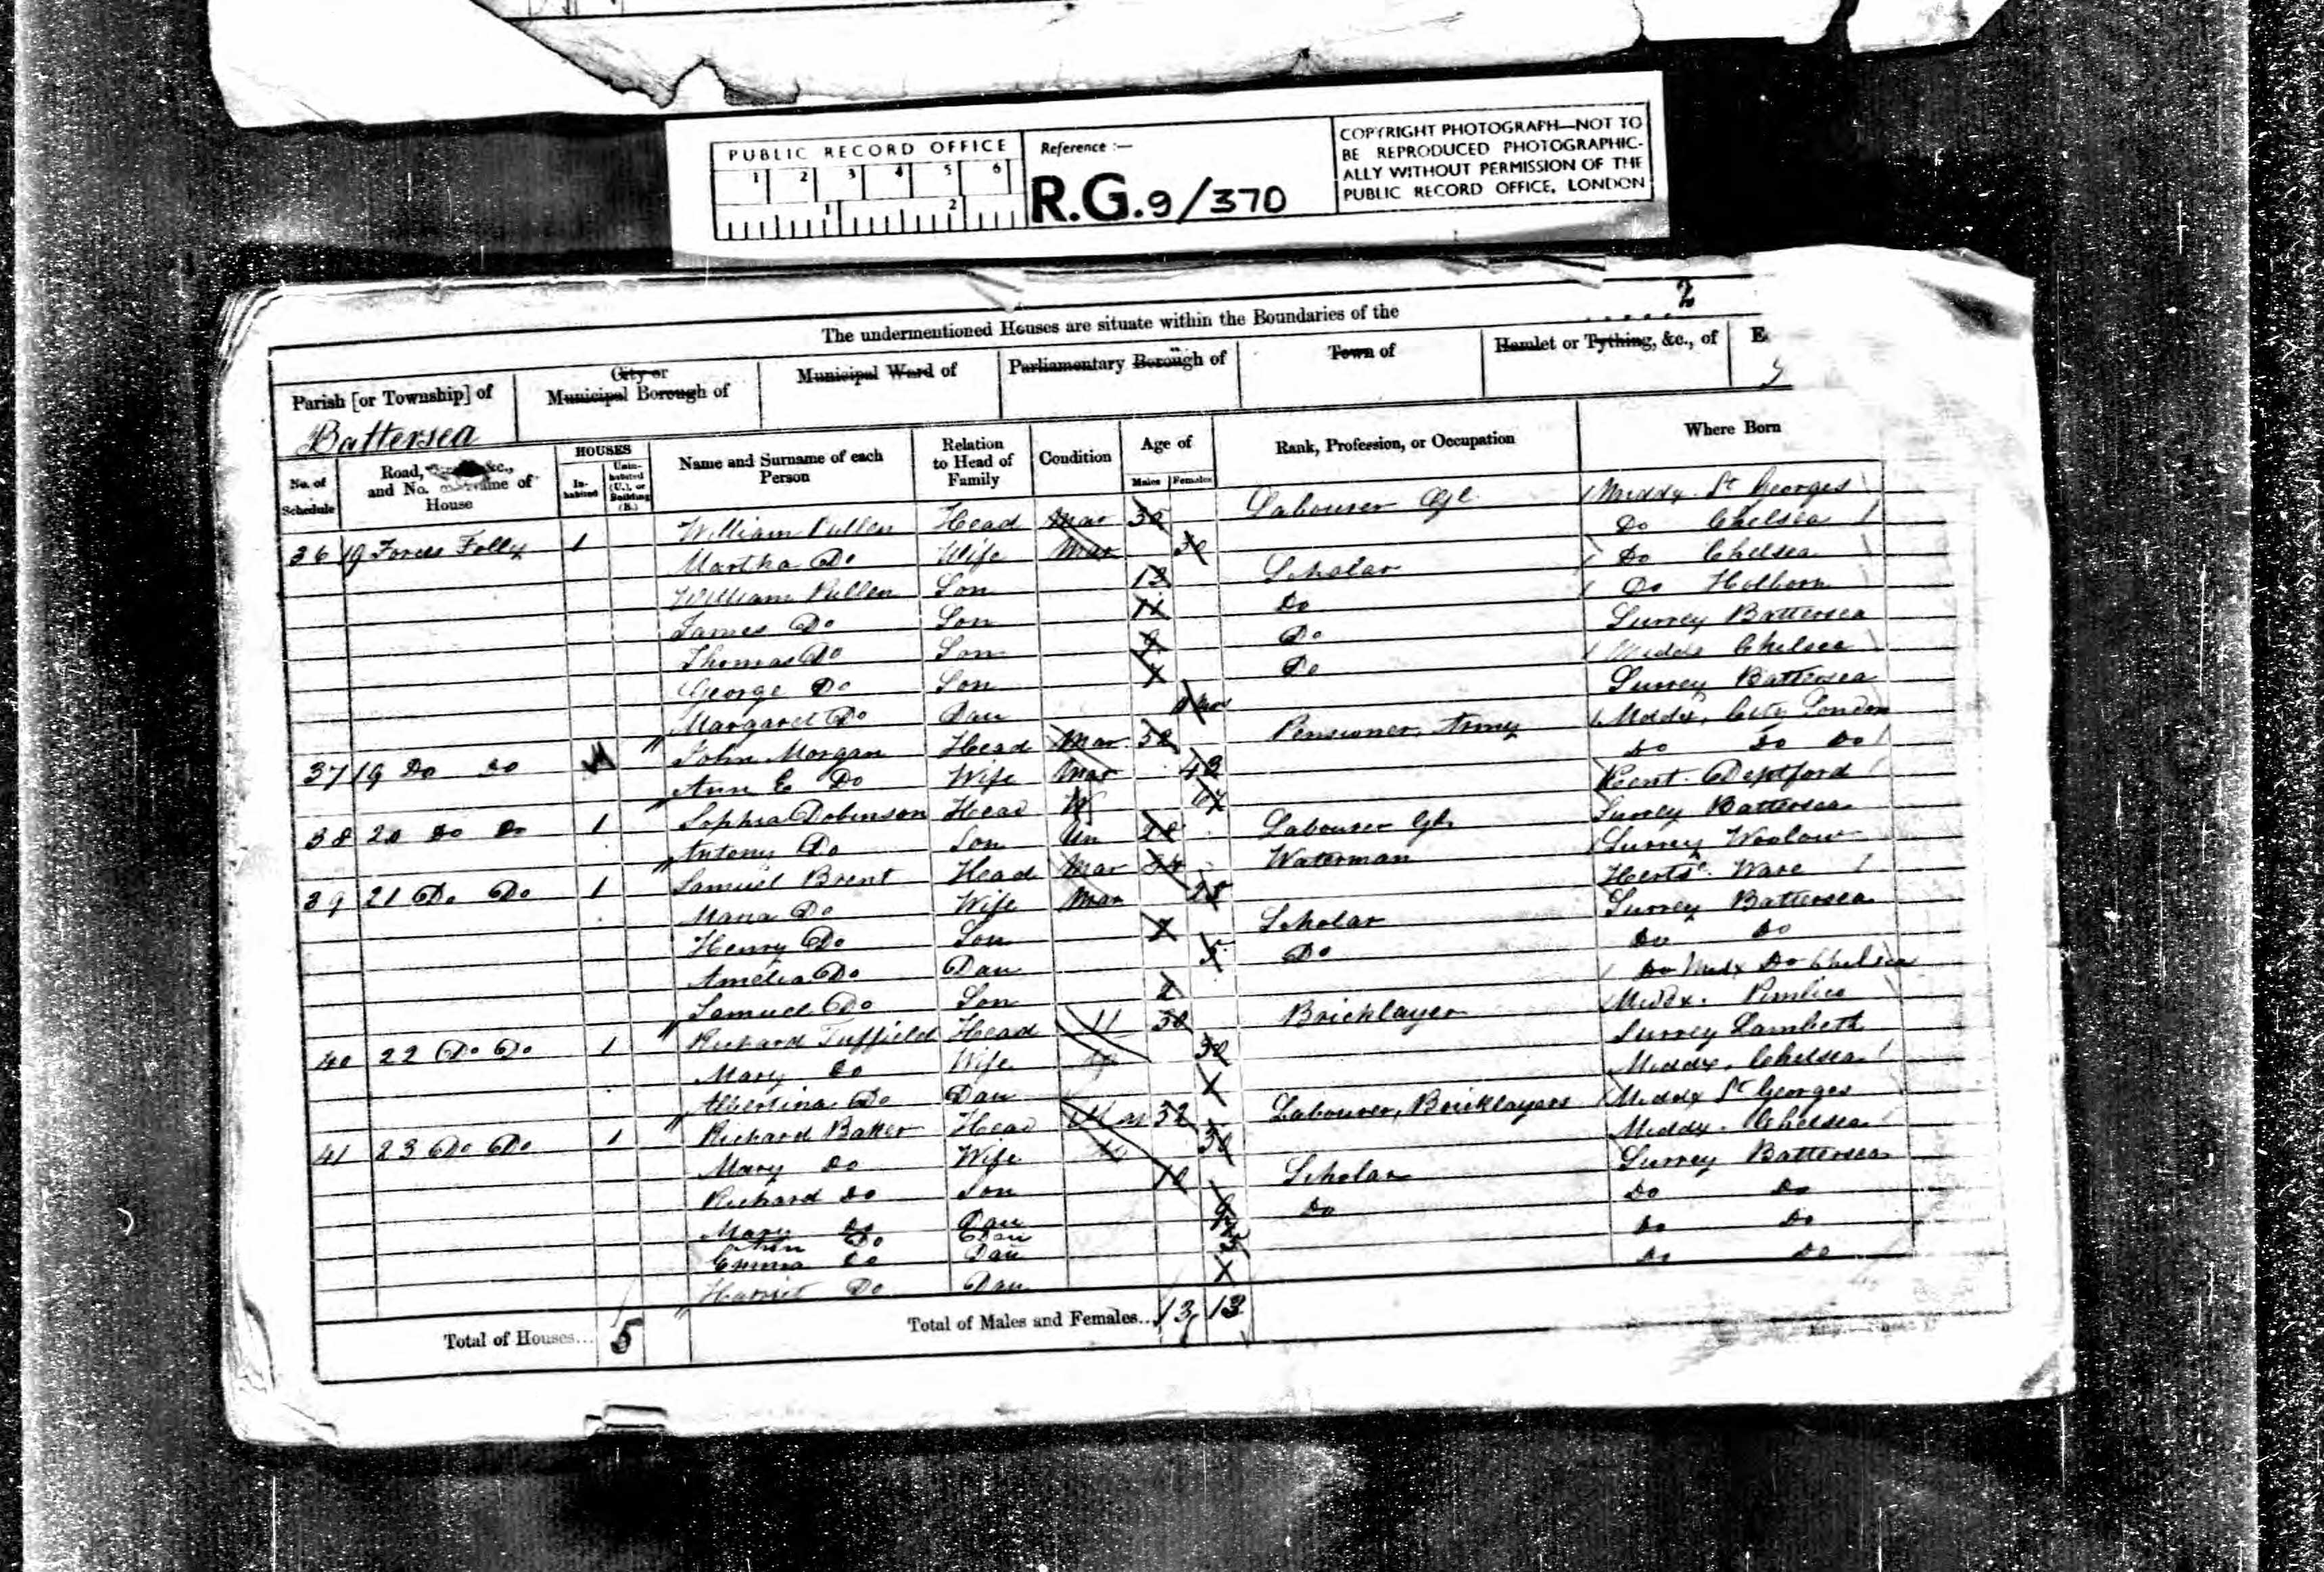 PUBLIC RECORD OFFICE
1 2 3 4 5 6
1 2
Reference :—
R.G. 9/370
COPYRIGHT PHOTOGRAPH—NOT TO
BE REPRODUCED PHOTOGRAPHIC-
ALLY WITHOUT PERMISSION OF THE
PUBLIC RECORD OFFICE, LONDON
2
The undermentioned Houses are situate within the Boundaries of the
Parish [or Township] of City or Municipal Borough of Municipal Ward of Parliamentary Borough of Town of Hamlet or Tything, &c., of E
Battersea
No. of Schedule Road, &c., and No. or Name of House HOUSES In-habited Unin-habited (U.), or Building (B.) Name and Surname of each Person Relation to Head of Family Condition Age of Males Females Rank, Profession, or Occupation Where Born
36 19 Folly 1 William Pullen Head Mar 30 Labourer Middx St Georges
Martha Do Wife Mar 30 Do Chelsea
William Pullen Son 13 Scholar Do Chelsea
James Do Son 11 Do Do Holborn
Thomas Do Son 9 Do Surrey Battersea
George Do Son Do Middx Chelsea
Margaret Do Dau Surrey Battersea
37 19 Do Do John Morgan Head Mar 52 Pensioner, Army Middx, City London
Ann E Do Wife Mar 43 Do Do Do
38 20 Do Do 1 Sophia Dobinson Head W Kent Deptford
Antony Do Son Un 28 Labourer Surrey Battersea
39 21 Do Do 1 Samuel Brent Head Mar 34 Waterman Surrey
Maria Do Wife Mar 28 Herts Ware
Henry Do Son 7 Scholar Surrey Battersea
Amelia Do Dau 5 Do Do Do
Samuel Do Son 2 Do Midx Do Chelsea
40 22 Do Do 1 Richard Tuffield Head 30 Bricklayer Middx. Pimlico
Mary Do Wife 30 Surrey Lambeth
Albertina Do Dau Middx, Chelsea
41 23 Do Do 1 Richard Baker Head Mar 32 Labourer, Bricklayers Middx St Georges
Mary Do Wife 30 Middx. Chelsea
Richard Do Son 10 Scholar Surrey Battersea
Mary Do Dau Do Do Do
Ann Do Dau
Emma Do Dau Do Do
Harriet Do Dau Do Do
Total of Houses... 5 Total of Males and Females... 13 13